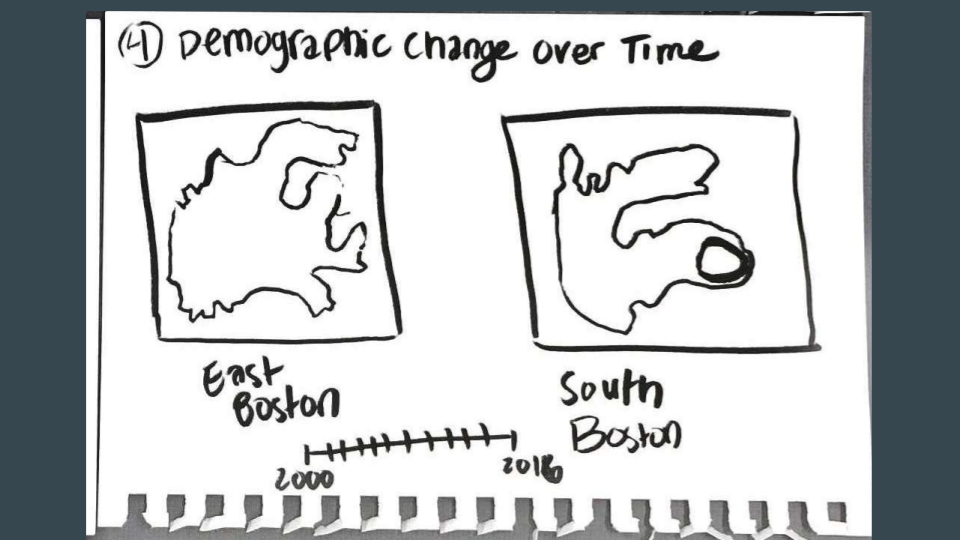 ④ Demographic Change Over Time
East
Boston
South
Boston
2000
2018